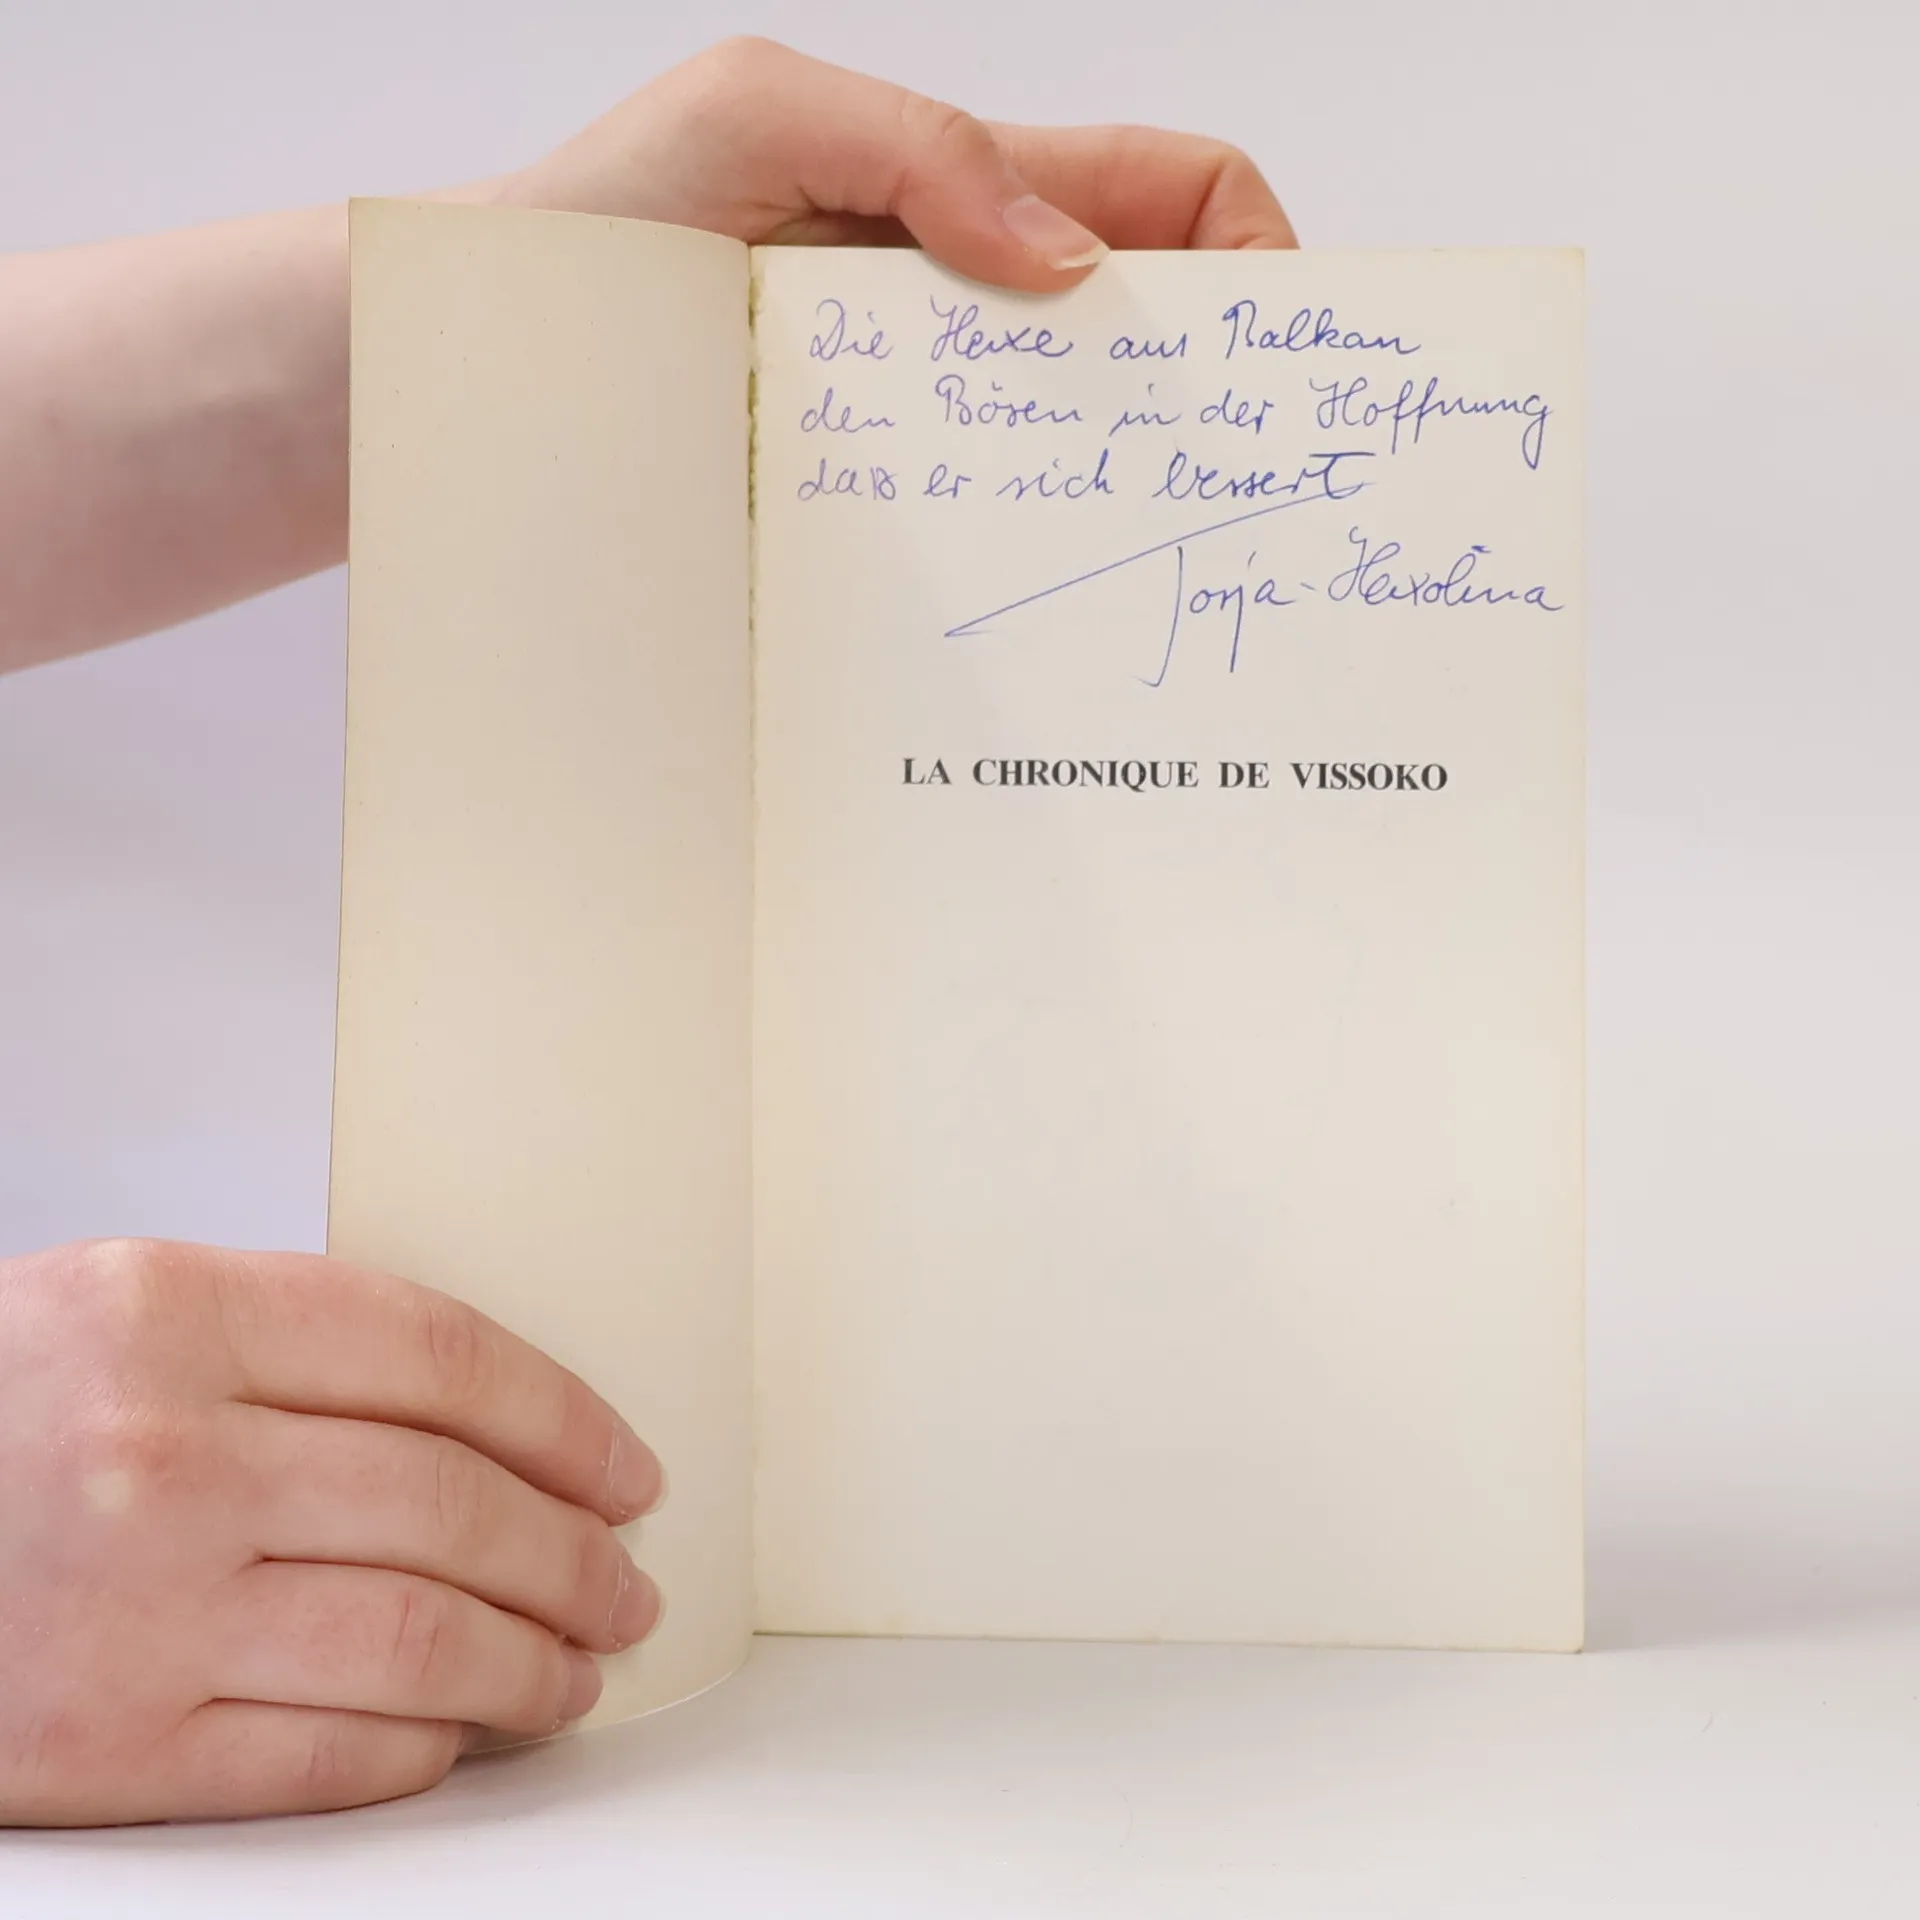 Die Hexe aus Balkan
den Bösen in der Hoffnung
daß er sich bessert
Tonja-Hexolina
LA CHRONIQUE DE VISSOKO